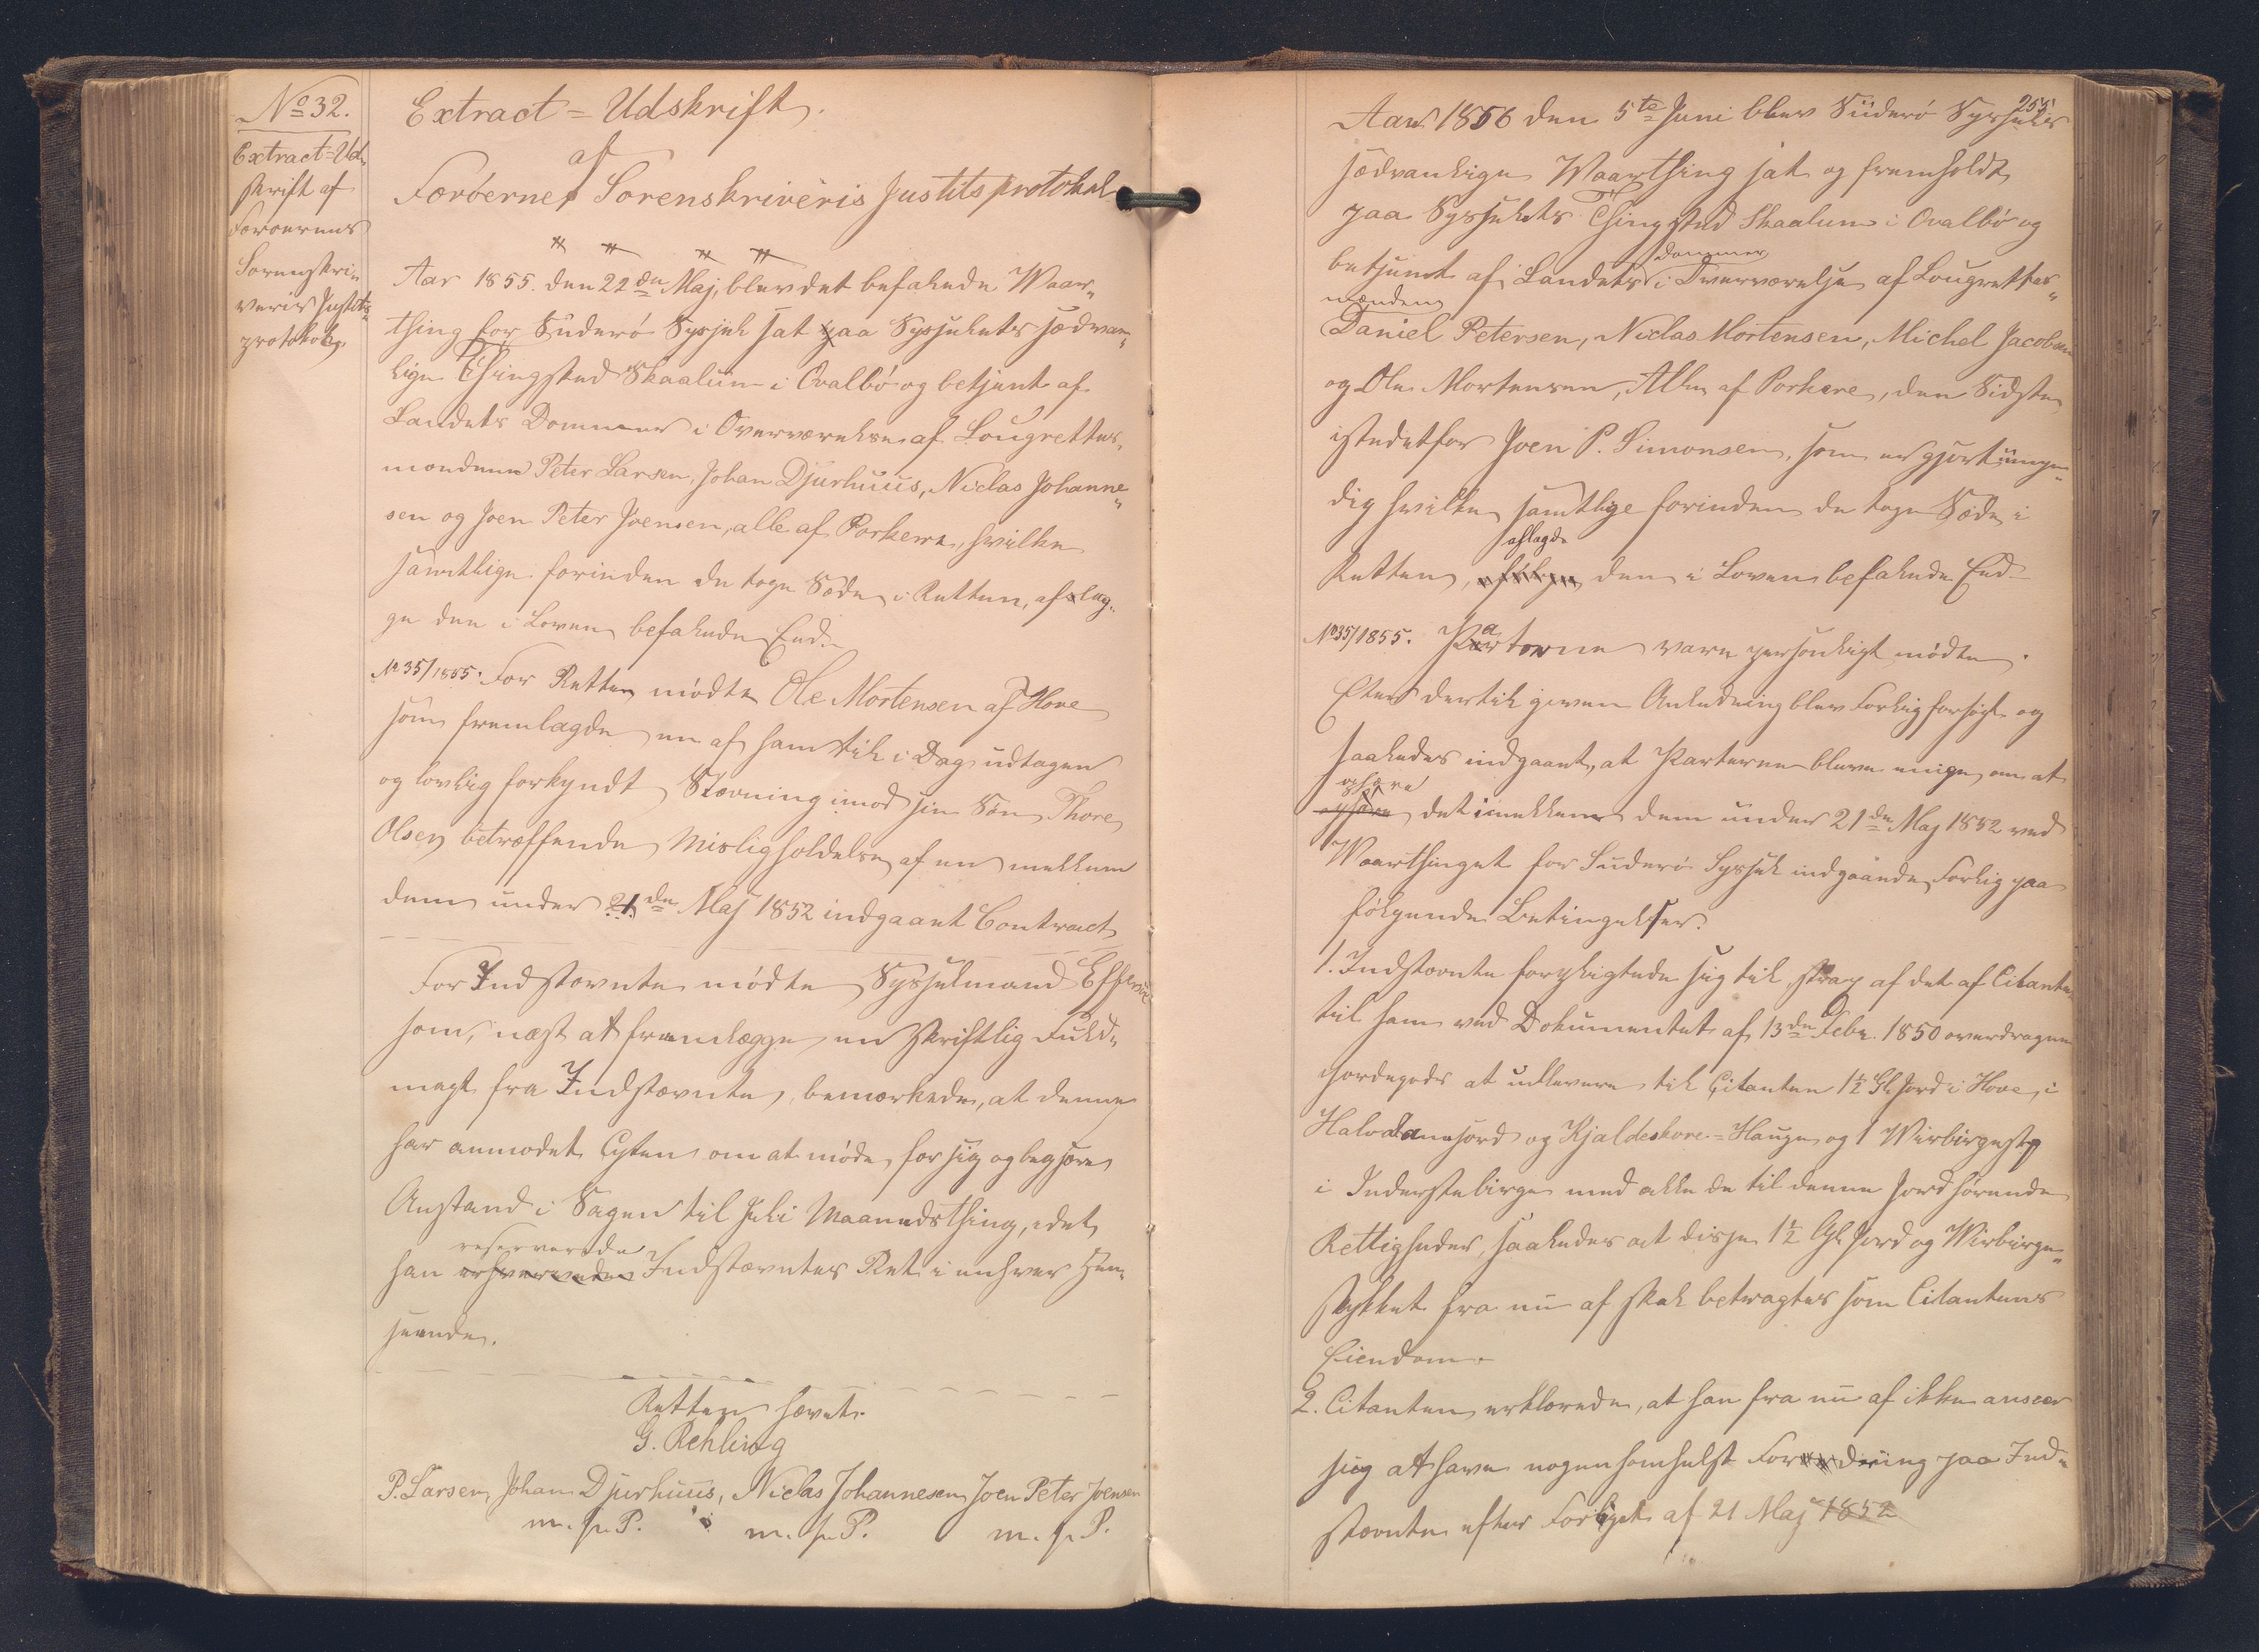 No 32.
Extract=Ud„
skrift af
Færøernes
Sorenskri„
veris Justits„
protokol.
Extract=Udskrift
af
Færøernes Sorenskriveris Justitsprotokol
Aar 1855. den 22den Maj, blev det befalede Waar„
thing for Suderø Syssel sat paa Sysselets sædvan„
lige Thingsted Skaalum i Qvalbø og betjent af
Landets Dommer i Overværelse af Lougrettes„
mændene Peter Larsen, Johan Djurhuus, Niclas Johanne„
sen og Joen Peter Joensen, alle af Porkere, hvilke
samtlige forinden de toge Sæde i Retten, aflag„
ge den i Loven befalede Eed.
No 35/1855. For Retten mødte Ole Mortensen af Hove
som fremlagde en af ham til i Dag udtagen
og lovlig forkyndt Stævning imod sin Søn Thore
Olsen betræffende Misligholdelse af en mellem
dem under 21de Maj 1852 indgaaet Contract
For Indstævnte mødte Sysselmand Effersøe
som, næst at fremlægge en skriftlig Fuld„
magt fra Indstævnte, bemærkede, at denne
har anmodet Cpten om at møde for sig og begjære
Anstand i Sagen til Juli Maanedsthing, idet
reserverede
han erhvervede Indstævntes Ret i enhver Hen„
seende.
Retten hævet.
G. Rehling
P. Larsen, Johan Djurhuus, Niclas Johannesen Joen Peter Joensen
m. p. P. m. p. P. m. p. P.
255
Aar 1856 den 5te Juni blev Süderø Syssels
sædvanlige Waarthing sat og fremholdt
paa Sysselets Thingsted Skaalum i Qvalbø og
Dommer
betjent af Landets i Overværelse af Lougrettes„
mændene
Daniel Petersen, Niclas Mortensen, Michel Jacobsen
og Ole Mortensen, Alle af Porkere, den Sidste
istedetfor Joen P. Simonsen, som er gjort umyn„
dig hvilke samtlige forinden de toge Sæde i
aflagde
Retten, den i Loven befalede Eed
No 35/1855. Parterne vare personligt mødte.
Efter dertil given Anledning blev Forlig forsøgt og
saaledes indgaaet, at Parterne bleve enige om at
ophæve
ophæve det imellem dem under 21de Maj 1852 ved
Waarthinget for Suderø Syssel indgaaede Forlig paa
følgende Betingelser:
1. Indstævnte forpligtede sig til strax af det af Citanten
til ham ved Dokumentet af 13de Febr. 1850 overdragne
Jordegods at udlevere til Citanten 1½ Gl Jord i Hove, i
Halvdanejord og Kjaldeskore=Hauge og 1 Wirbirgestk
i Inderstebirge med alle de til denne Jord hørende
Rettigheder, saaledes at disse 1½ Gl Jord og Wirbirge„
stykket fra nu af skal betragtes som Citantens
Eiendom.
2. Citanten erklærede, at han fra nu af ikke anseer
sig at have nogensomhelst Fordring paa Ind„
stævnte efter Forliget af 21 Maj 1852